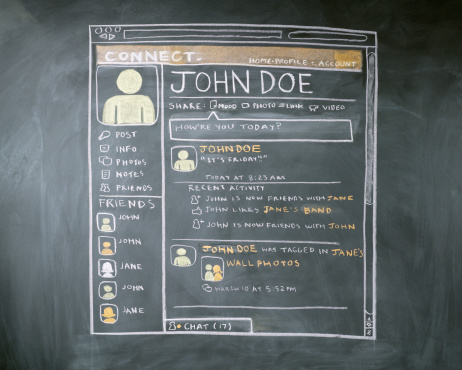 CONNECT.
HOME-PROFILE-ACCOUNT
JOHN DOE
SHARE: MOOD PHOTO LINK VIDEO
HOW'RE YOU TODAY?
POST
INFO
PHOTOS
NOTES
FRIENDS
FRIENDS
JOHN
JOHN
JANE
JOHN
JANE
JOHN DOE
"IT'S FRIDAY!"
TODAY AT 8:23 AM
RECENT ACTIVITY
JOHN IS NOW FRIENDS WITH JANE
JOHN LIKES JANE'S BAND
JOHN IS NOW FRIENDS WITH JOHN
JOHN DOE WAS TAGGED IN JANE'S
WALL PHOTOS
MARCH 10 AT 5:52PM
CHAT (17)